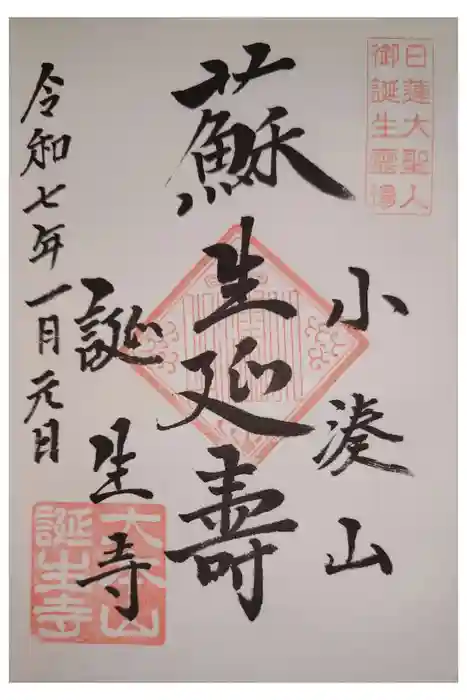 日蓮大聖人
御誕生霊場
小湊山
蘇生延壽
誕生寺
令和七年一月元日
大本山
誕生寺